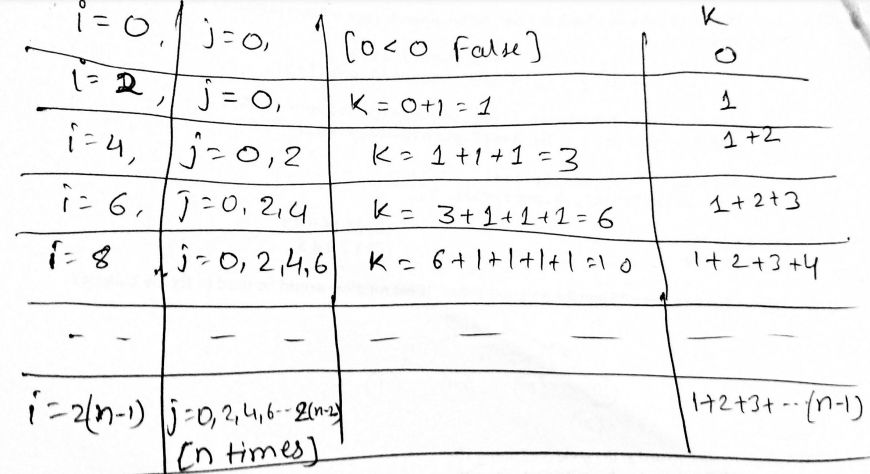 i=0, j=0, [0<0 False] K 0
i=2, j=0, K=0+1=1 1
i=4, j=0,2 K=1+1+1=3 1+2
i=6, j=0,2,4 K=3+1+1+1=6 1+2+3
i=8 j=0,2,4,6 K=6+1+1+1+1=10 1+2+3+4
- - - - - - - - -
i=2(n-1) j=0,2,4,6--2(n-2) 1+2+3+--(n-1)
[n times]